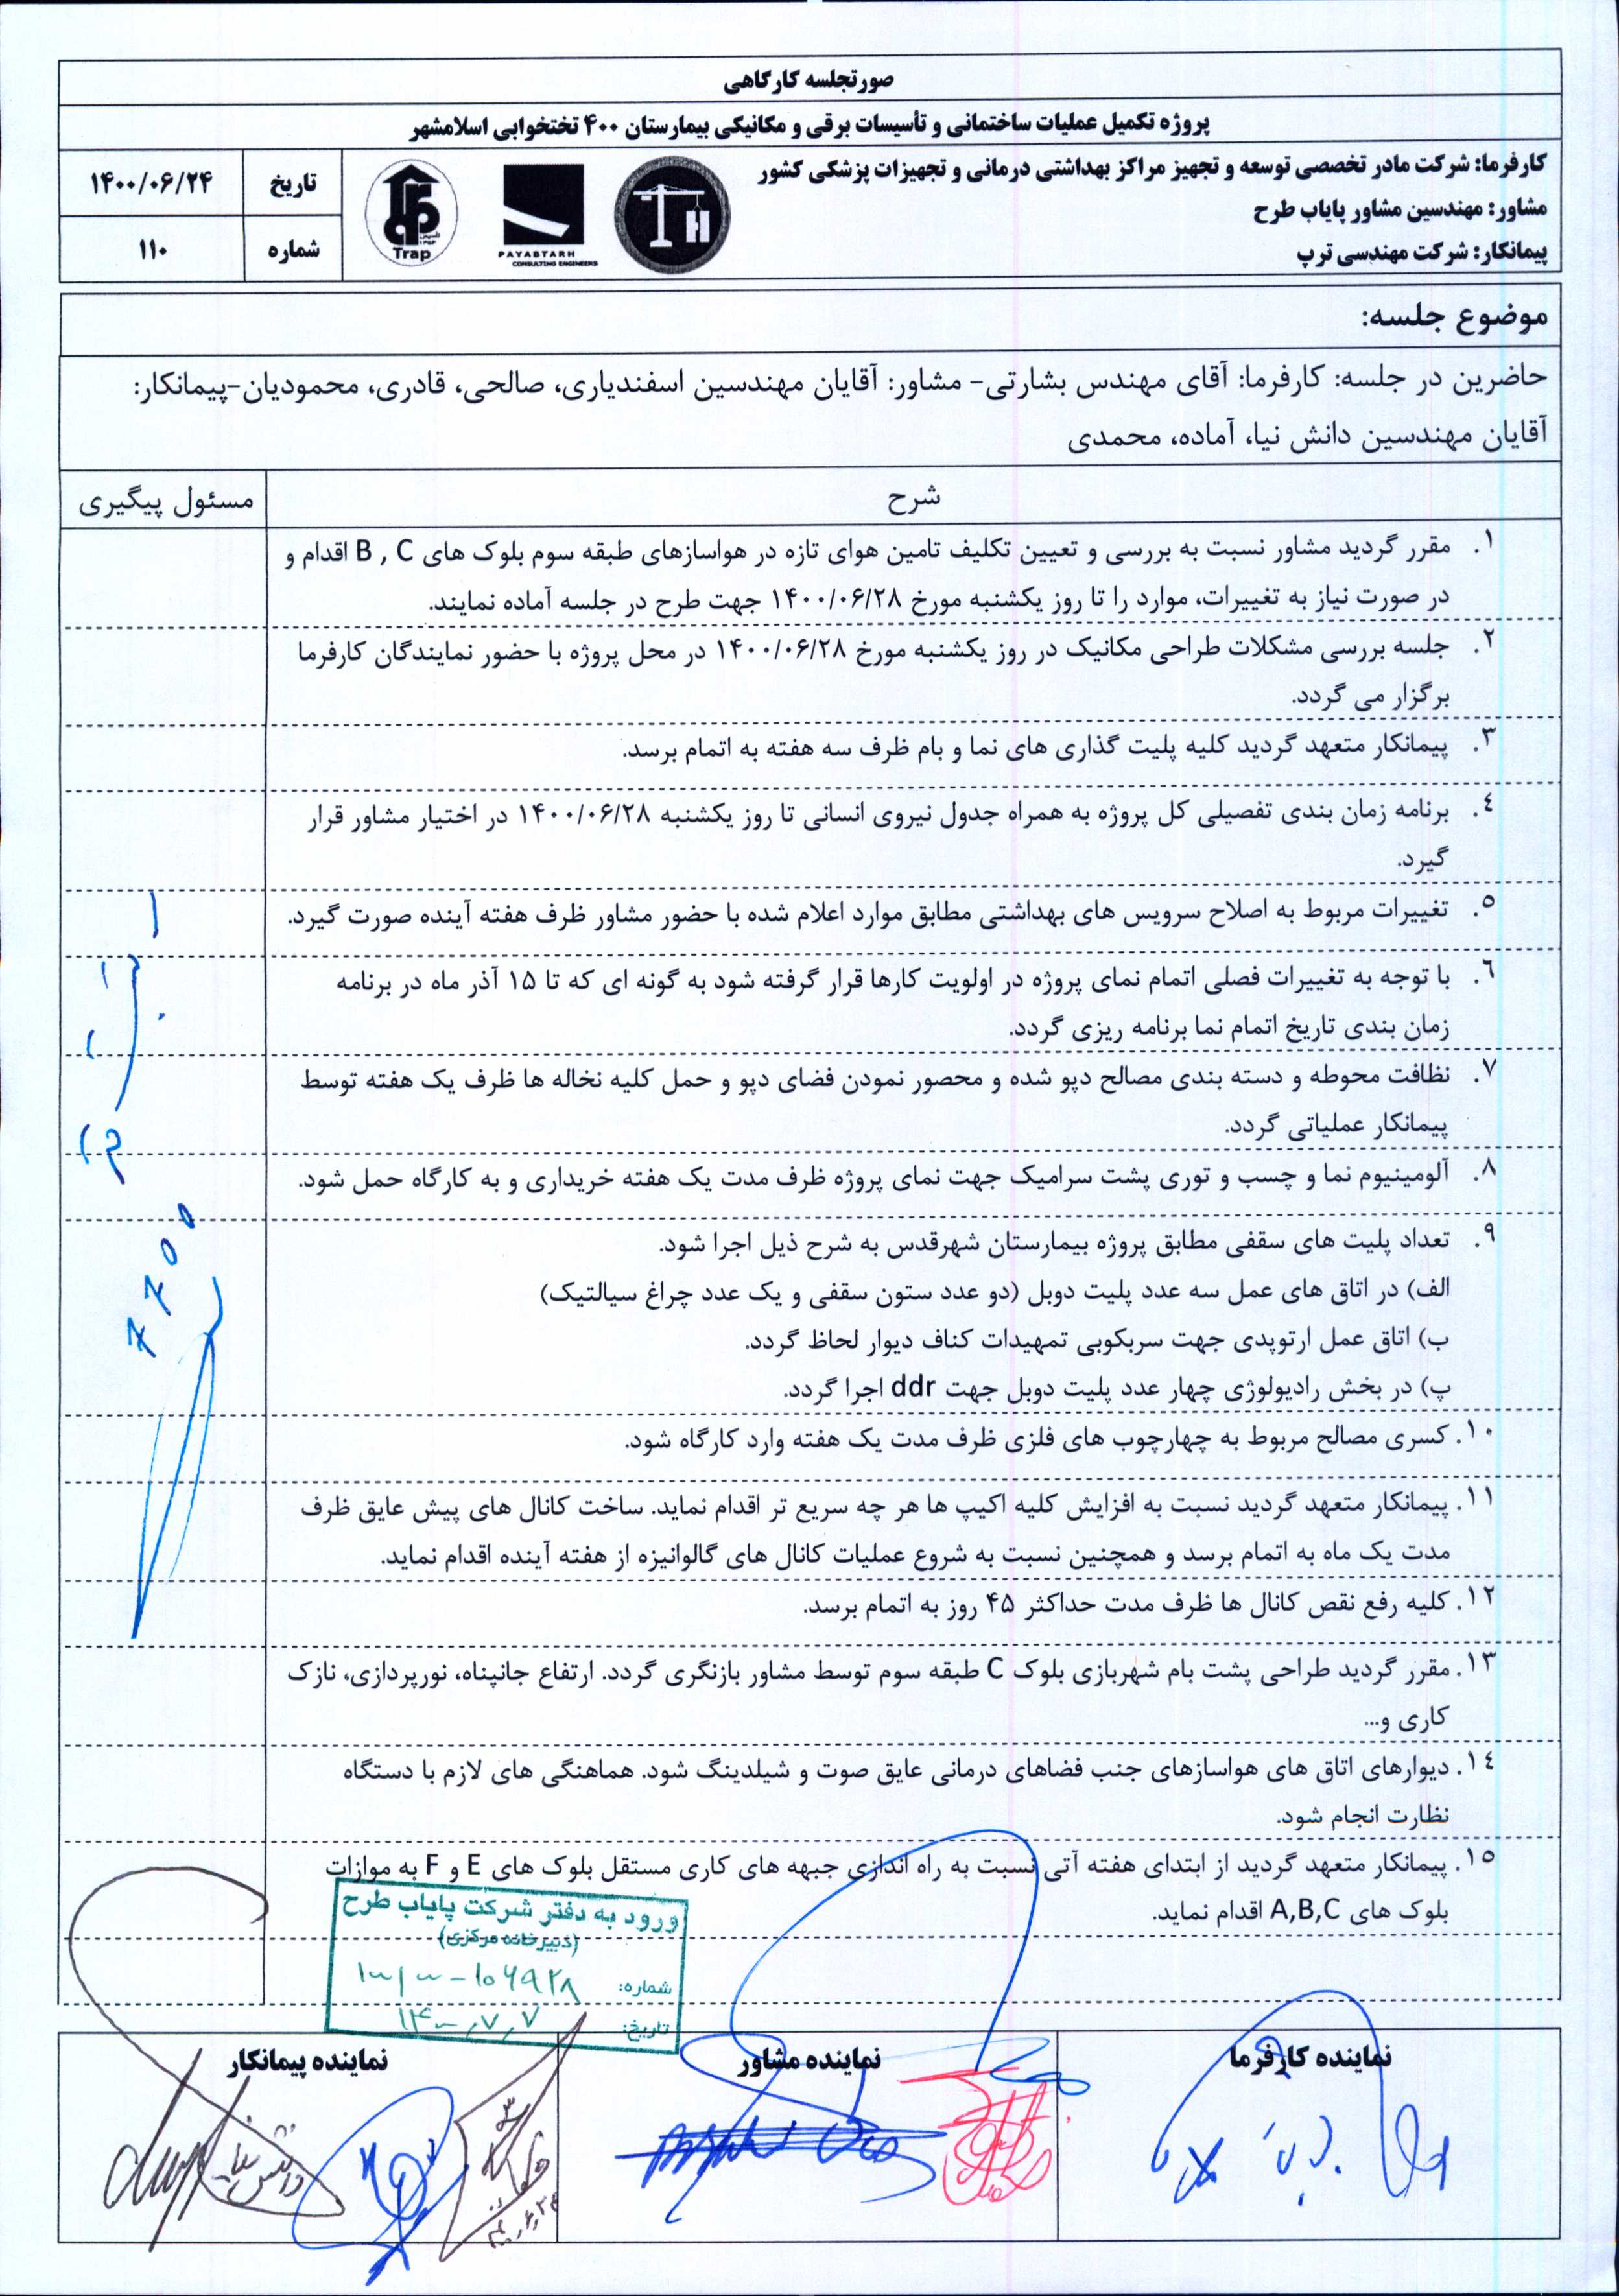 صورتجلسه کارگاهی
پروژه تکمیل عملیات ساختمانی و تأسیسات برقی و مکانیکی بیمارستان ۴۰۰ تختخوابی اسلامشهر
کارفرما: شرکت مادر تخصصی توسعه و تجهیز مراکز بهداشتی درمانی و تجهیزات پزشکی کشور
مشاور: مهندسین مشاور پایاب طرح
پیمانکار: شرکت مهندسی ترپ
PAYABTARH
CONSULTING ENGINEERS
Trap
تاریخ
۱۴۰۰/۰۶/۲۴
شماره
۱۱۰
موضوع جلسه:
حاضرین در جلسه: کارفرما: آقای مهندس بشارتی- مشاور: آقایان مهندسین اسفندیاری، صالحی، قادری، محمودیان-پیمانکار:
آقایان مهندسین دانش نیا، آماده، محمدی
شرح
مسئول پیگیری
۱. مقرر گردید مشاور نسبت به بررسی و تعیین تکلیف تامین هوای تازه در هواسازهای طبقه سوم بلوک های B , C اقدام و
در صورت نیاز به تغییرات، موارد را تا روز یکشنبه مورخ ۱۴۰۰/۰۶/۲۸ جهت طرح در جلسه آماده نمایند.
۲. جلسه بررسی مشکلات طراحی مکانیک در روز یکشنبه مورخ ۱۴۰۰/۰۶/۲۸ در محل پروژه با حضور نمایندگان کارفرما
برگزار می گردد.
۳. پیمانکار متعهد گردید کلیه پلیت گذاری های نما و بام ظرف سه هفته به اتمام برسد.
٤. برنامه زمان بندی تفصیلی کل پروژه به همراه جدول نیروی انسانی تا روز یکشنبه ۱۴۰۰/۰۶/۲۸ در اختیار مشاور قرار
گیرد.
٥. تغییرات مربوط به اصلاح سرویس های بهداشتی مطابق موارد اعلام شده با حضور مشاور ظرف هفته آینده صورت گیرد.
٦. با توجه به تغییرات فصلی اتمام نمای پروژه در اولویت کارها قرار گرفته شود به گونه ای که تا ۱۵ آذر ماه در برنامه
زمان بندی تاریخ اتمام نما برنامه ریزی گردد.
۷. نظافت محوطه و دسته بندی مصالح دپو شده و محصور نمودن فضای دپو و حمل کلیه نخاله ها ظرف یک هفته توسط
پیمانکار عملیاتی گردد.
۸. آلومینیوم نما و چسب و توری پشت سرامیک جهت نمای پروژه ظرف مدت یک هفته خریداری و به کارگاه حمل شود.
۹. تعداد پلیت های سقفی مطابق پروژه بیمارستان شهرقدس به شرح ذیل اجرا شود.
الف) در اتاق های عمل سه عدد پلیت دوبل (دو عدد ستون سقفی و یک عدد چراغ سیالتیک)
ب) اتاق عمل ارتوپدی جهت سربکوبی تمهیدات کناف دیوار لحاظ گردد.
پ) در بخش رادیولوژی چهار عدد پلیت دوبل جهت ddr اجرا گردد.
۱۰. کسری مصالح مربوط به چهارچوب های فلزی ظرف مدت یک هفته وارد کارگاه شود.
۱۱. پیمانکار متعهد گردید نسبت به افزایش کلیه اکیپ ها هر چه سریع تر اقدام نماید. ساخت کانال های پیش عایق ظرف
مدت یک ماه به اتمام برسد و همچنین نسبت به شروع عملیات کانال های گالوانیزه از هفته آینده اقدام نماید.
۱۲. کلیه رفع نقص کانال ها ظرف مدت حداکثر ۴۵ روز به اتمام برسد.
۱۳. مقرر گردید طراحی پشت بام شهربازی بلوک C طبقه سوم توسط مشاور بازنگری گردد. ارتفاع جانپناه، نورپردازی، نازک
کاری و...
۱٤. دیوارهای اتاق های هواسازهای جنب فضاهای درمانی عایق صوت و شیلدینگ شود. هماهنگی های لازم با دستگاه
نظارت انجام شود.
۱٥. پیمانکار متعهد گردید از ابتدای هفته آتی نسبت به راه اندازی جبهه های کاری مستقل بلوک های E و F به موازات
بلوک های A,B,C اقدام نماید.
ورود به دفتر شرکت پایاب طرح
(دبیرخانه مرکزی)
شماره:
تاریخ: ۱۴۰۰,۷,۷
نماینده کارفرما
نماینده مشاور
نماینده پیمانکار
دانش نیا